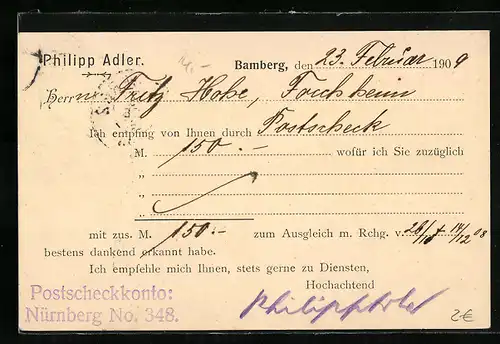 Philipp Adler.
Bamberg, den 23. Februar 1909
Herrn Fritz Hohe, Forchheim
Ich empfing von Ihnen durch Postscheck
M. 150.- wofür ich Sie zuzüglich
"
"
"
mit zus. M. 150.- zum Ausgleich m. Rchg. v. 28/10 + 14/12 08
bestens dankend erkannt habe.
Ich empfehle mich Ihnen, stets gerne zu Diensten,
Hochachtend
Postscheckkonto:
Nürnberg No. 348.
Philipp Adler
2€